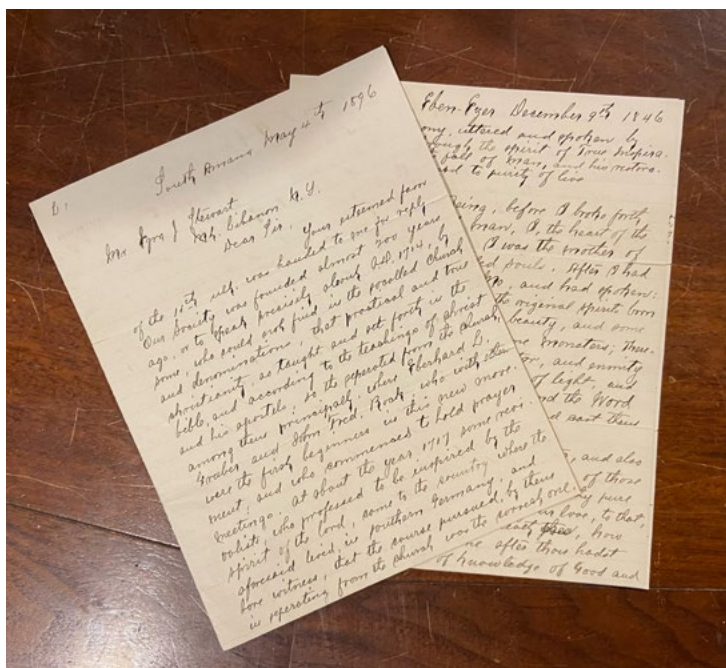 D,
South Amana May 4th 1896
Mr Ezra J Stewart
Mt. Lebanon N. Y.
Dear Sir, Your esteemed favor
of the 16th ult. was handed to me for reply
Our Society was founded almost 200 years
ago, or to speak precisely about A.D. 1714, by
some, who could not find in the socalled Church
and denominations, that practical and true
christianity, as taught and set forth in the
bible, and according to the teachings of christ
and his apostels; so the seperated from the church,
among them principally where Eberhard L.
Gruber and John Fred. Rock, who with others
were the first beginners in this new move-
ment; and who commenced to hold prayer
meetings. At about the year 1717 some revi-
valists, who professed to be inspired by the
spirit of the Lord, came to the country where the
aforesaid lived, in southern Germany, and
bore witness, that the course pursued, by them
in seperating from the church was the correct one.
Eben-Ezer December 9th 1846
ony, uttered and spoken by
ough the spirit of True Inspira-
fall of man, and his restora-
to purity of live
eing, before I broke forth
man, I, the heart of the
I was the mother of
ed souls. After I had
, and had spoken:
the original spirits born
beauty, and some
monsters; There-
tor, and enmity
of light, and
nd the Word
d cast them
, and also
of those
my pure
us love, to that,
how
after thou hadst
of knowledge of Good and